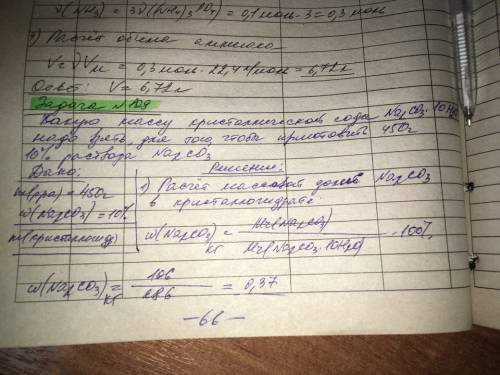 ν(NH₃) = 3ν((NH₄)₃PO₄) = 0,1 моль · 3 = 0,3 моль
2) Расчёт объема аммиака
V = ν·Vм = 0,3 моль · 22,4 л/моль = 6,72 л
Ответ: V = 6,72 л
Задача № 109
Какую массу кристаллической соды Na₂CO₃·10H₂O
надо взять для того, чтобы приготовить 450г
10% раствора Na₂CO₃
Дано: Решение:
m(р-ра) = 450г
w(Na₂CO₃) = 10%
m(кристаллогид)
1) Расчет массовой доли Na₂CO₃
в кристаллогидрате
w(Na₂CO₃)кг = Mr(Na₂CO₃) / Mr(Na₂CO₃·10H₂O) · 100%
w(Na₂CO₃)кг = 106 / 286 = 0,37
—66—